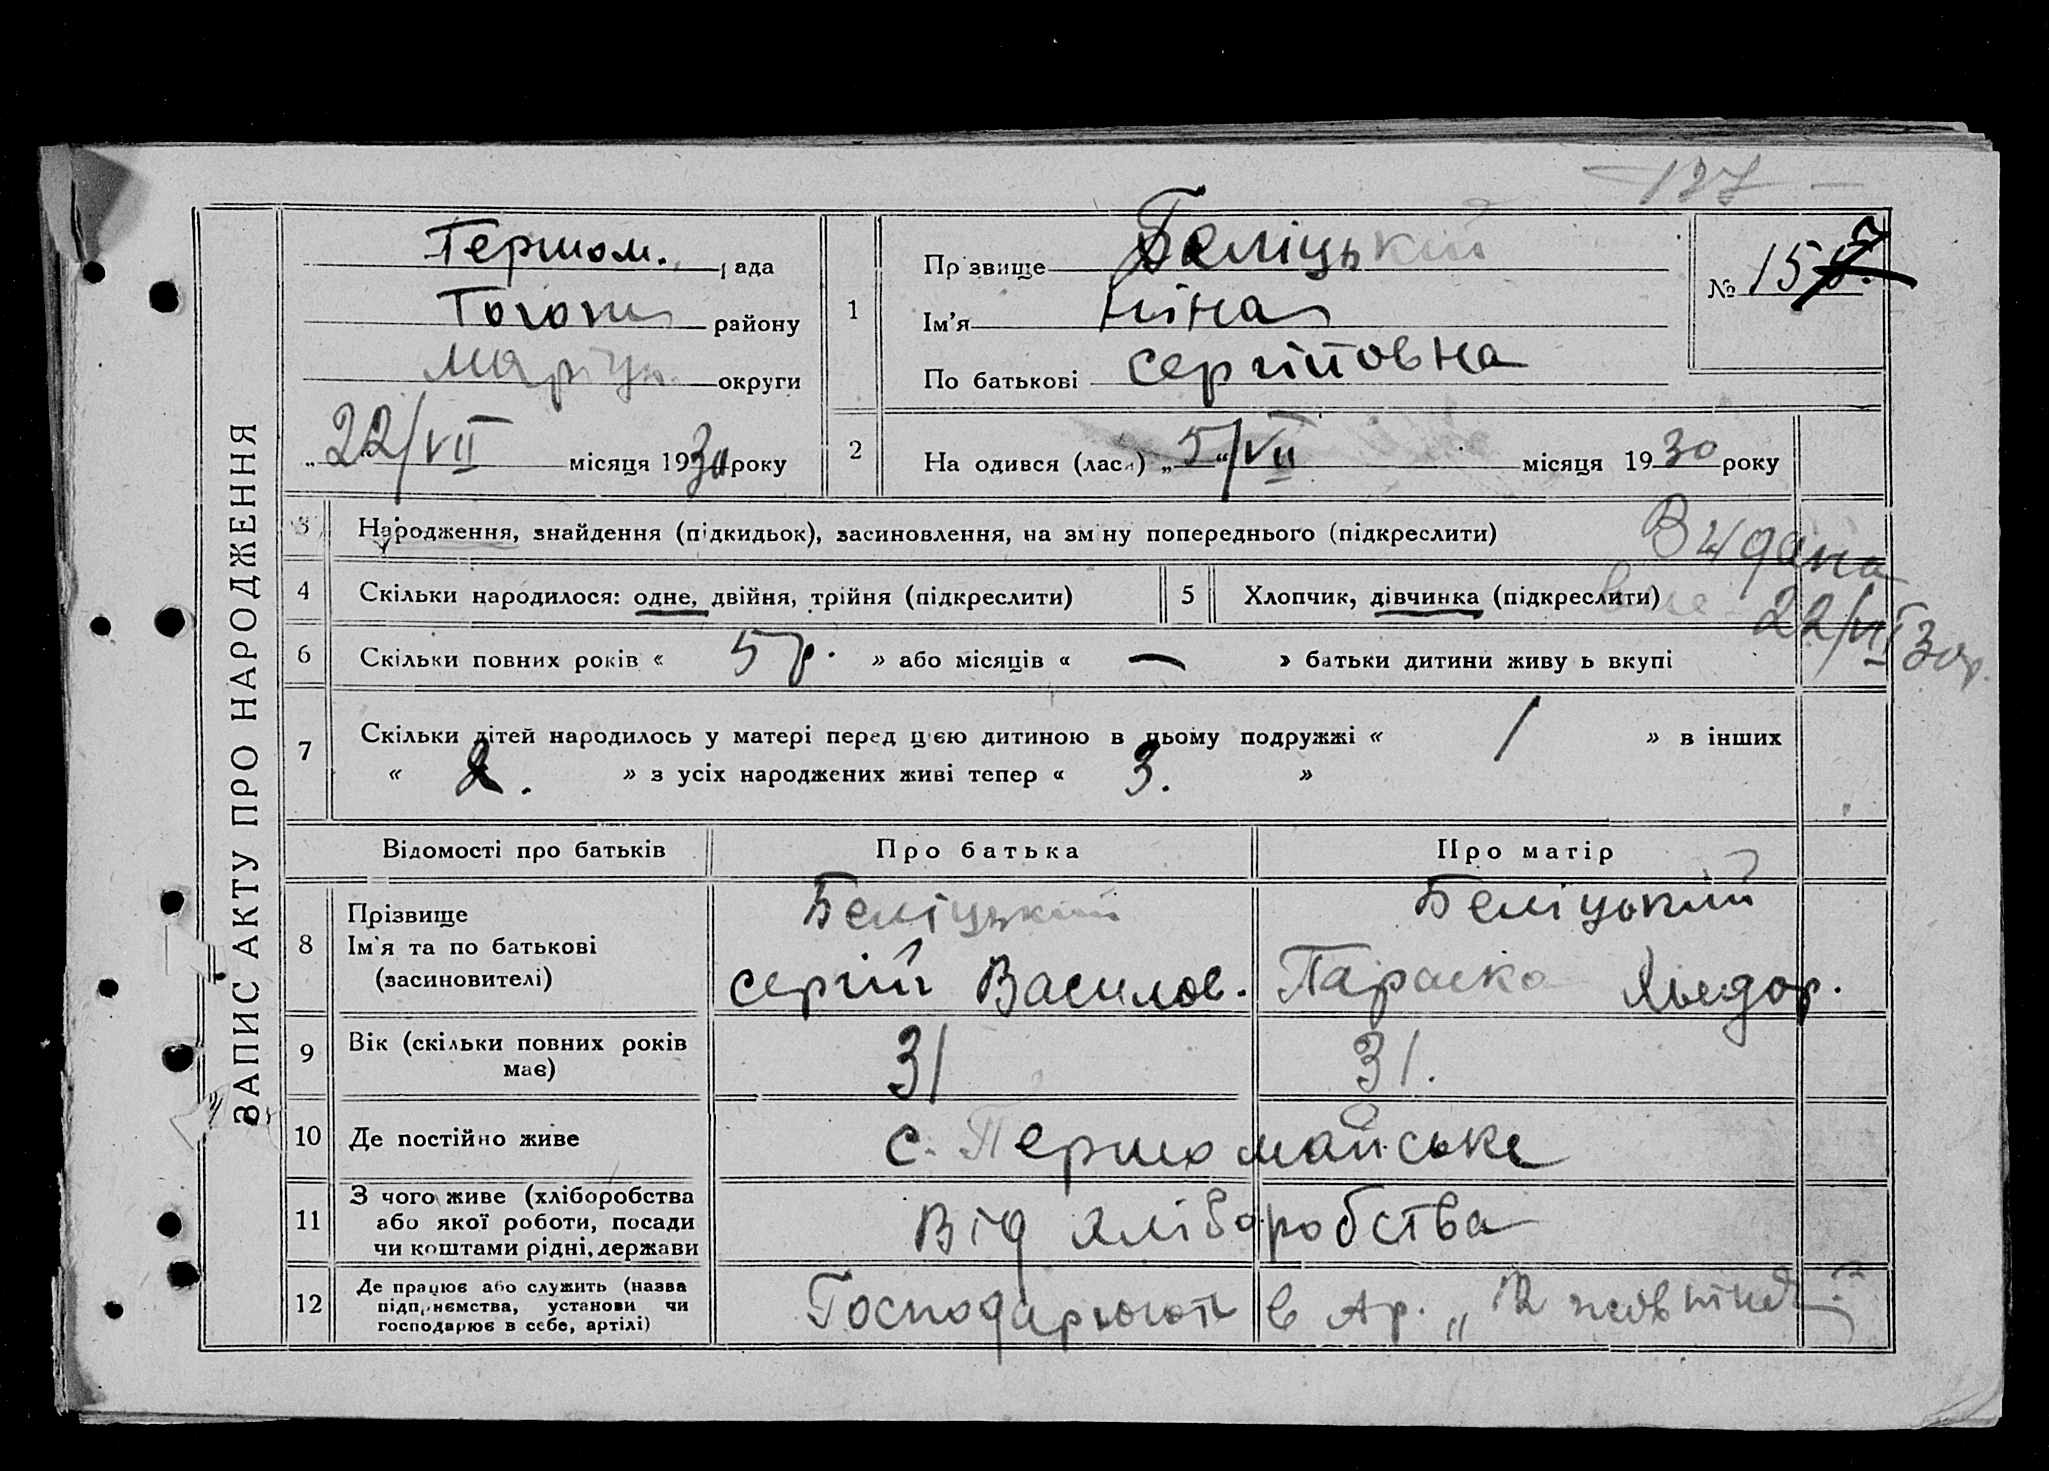 127
ЗАПИС АКТУ ПРО НАРОДЖЕННЯ
Першом. рада
району
Маріуп. округи
„22/VII місяця 1930 року
1
Прізвище Беліцький
Ім'я Ніна
По батькові Сергійовна
№ 157
2
Народився (лася) „5“/VII місяця 1930 року
3 Народження, знайдення (підкидьок), засиновлення, на зміну попереднього (підкреслити)
Видана
22/VII 30р.
4 Скільки народилося: одне, двійня, трійня (підкреслити)
5 Хлопчик, дівчинка (підкреслити)
6 Скільки повних років « 5 р. » або місяців « — » батьки дитини живуть вкупі
7 Скільки дітей народилось у матері перед цією дитиною в цьому подружжі « 1 » в інших
« 2. » з усіх народжених живі тепер « 3. »
Відомості про батьків Про батька Про матір
8 Прізвище Беліцький Беліцький
Ім'я та по батькові
(засиновителі) Сергій Василов. Параска Хведор.
9 Вік (скільки повних років має) 31 31.
10 Де постійно живе с. Першомайське
11 З чого живе (хліборобства
або якої роботи, посади
чи коштами рідні, держави Від хліборобства
12 Де працює або служить (назва
підприємства, установи чи
господарює в себе, артілі) Господарюють в Ар. „12 жовтня"